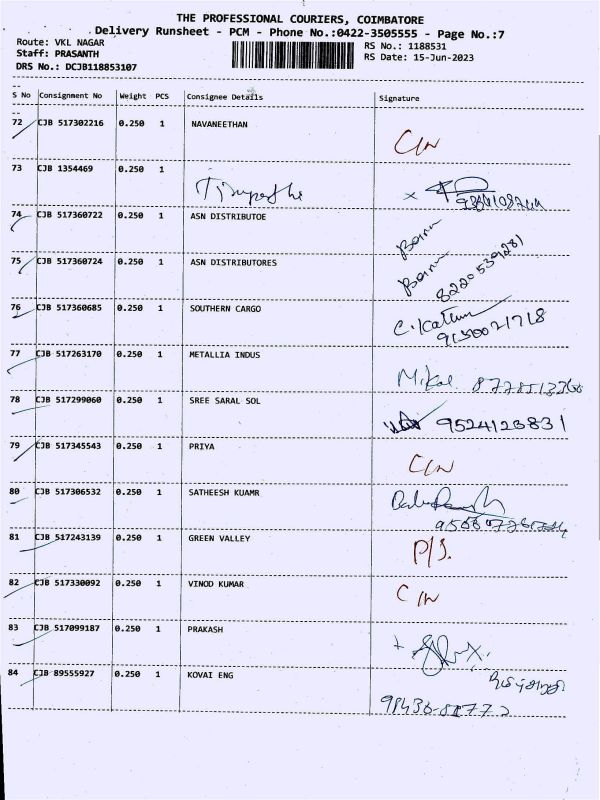 THE PROFESSIONAL COURIERS, COIMBATORE
Delivery Runsheet - PCM - Phone No.:0422-3505555 - Page No.:7
Route: VKL NAGAR
RS No.: 1188531
Staff: PRASANTH
RS Date: 15-Jun-2023
DRS No.: DCJB118853107
S No Consignment No Weight PCS Consignee Details Signature
72 CJB 517302216 0.250 1 NAVANEETHAN
73 CJB 1354469 0.250 1
74 CJB 517360722 0.250 1 ASN DISTRIBUTOE
75 CJB 517360724 0.250 1 ASN DISTRIBUTORES
8220539281
76 CJB 517360685 0.250 1 SOUTHERN CARGO
77 CJB 517263170 0.250 1 METALLIA INDUS
78 CJB 517299060 0.250 1 SREE SARAL SOL 9524123831
79 CJB 517345543 0.250 1 PRIYA
80 CJB 517306532 0.250 1 SATHEESH KUAMR
81 CJB 517243139 0.250 1 GREEN VALLEY
82 CJB 517330092 0.250 1 VINOD KUMAR
83 CJB 517099187 0.250 1 PRAKASH
84 CJB 89555927 0.250 1 KOVAI ENG